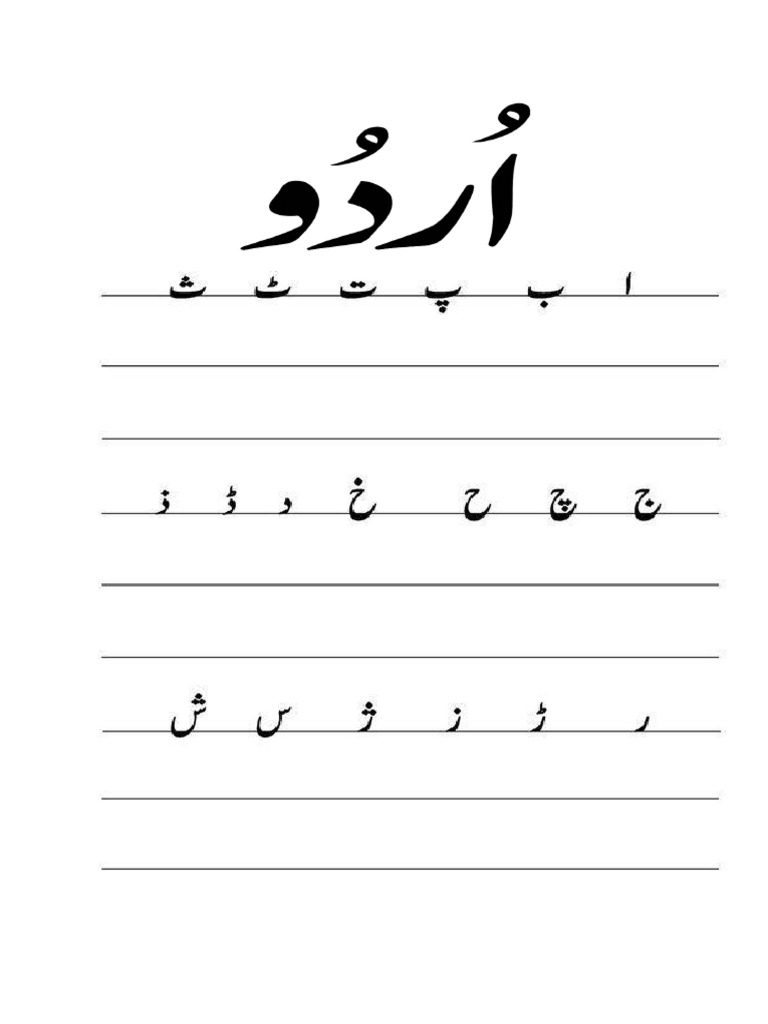 اُردُو
ا ب پ ت ٹ ث
ج چ ح خ د ڈ ذ
ر ڑ ز ژ س ش